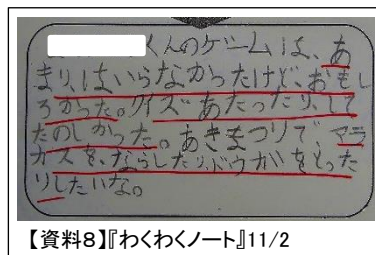 くんのゲームは、あ
まり、はいらなかったけど、おもし
ろかった。クイズあたったり、して
たのしかった。あきまつりで、マラ
カスを、ならしたり、ドウがをとった
りしたいな。
【資料8】『わくわくノート』11/2